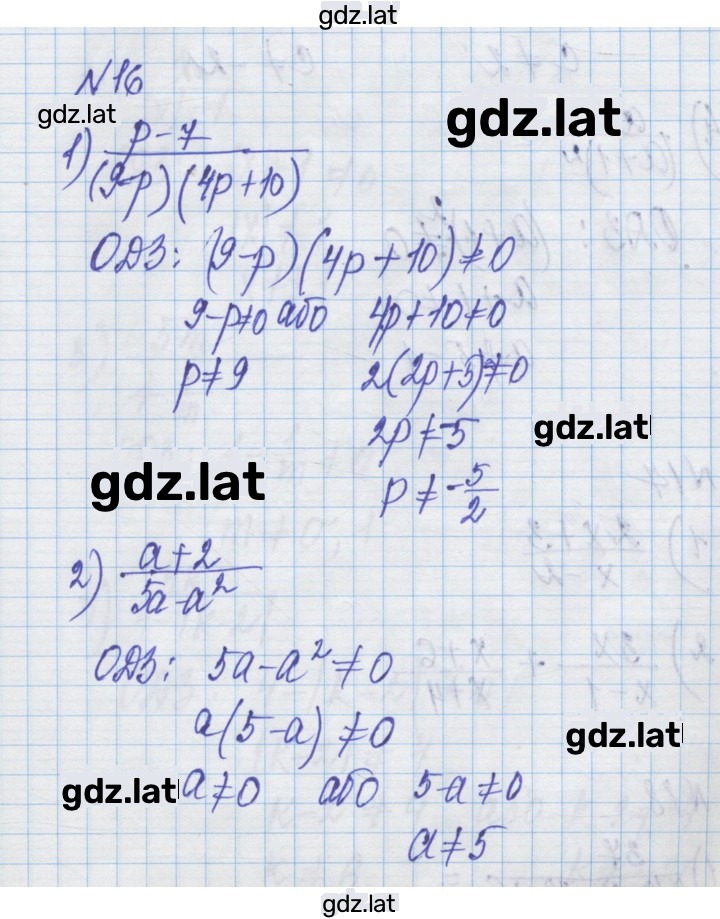 gdz.lat
N16
gdz.lat
gdz.lat
1) p-7
(9-p)(4p+10)
ОДЗ: (9-p)(4p+10)≠0
9-p≠0 або 4p+10≠0
p≠9 2(2p+5)≠0
2p≠-5
gdz.lat
gdz.lat
p≠-5/2
2) a+2
5a-a²
ОДЗ: 5a-a²≠0
a(5-a)≠0
gdz.lat
gdz.lat
a≠0 або 5-a≠0
a≠5
gdz.lat